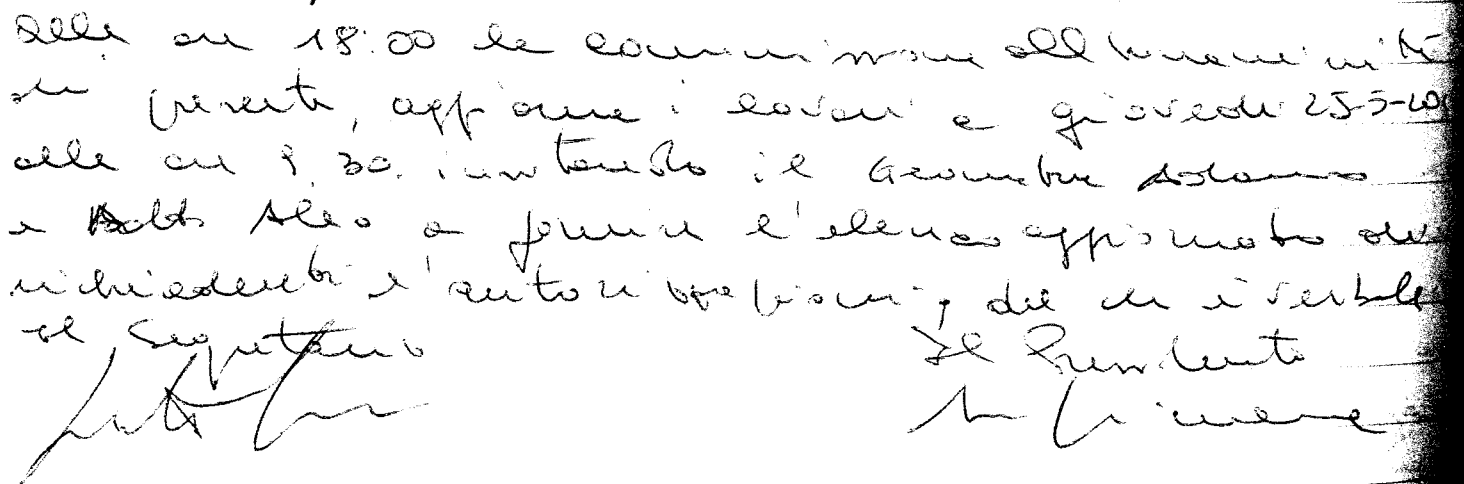 Alle ore 18:00 la commissione all'unanimità
dei presenti, aggiorna i lavori a giovedì 25-5-20
alle ore 9.30. invitando il Geometra Adamo
e Dott. Aleo a fornire l'elenco aggiornato dei
richiedenti l'autorizzazioni, del che è verbale
Il Segretario
Il Presidente